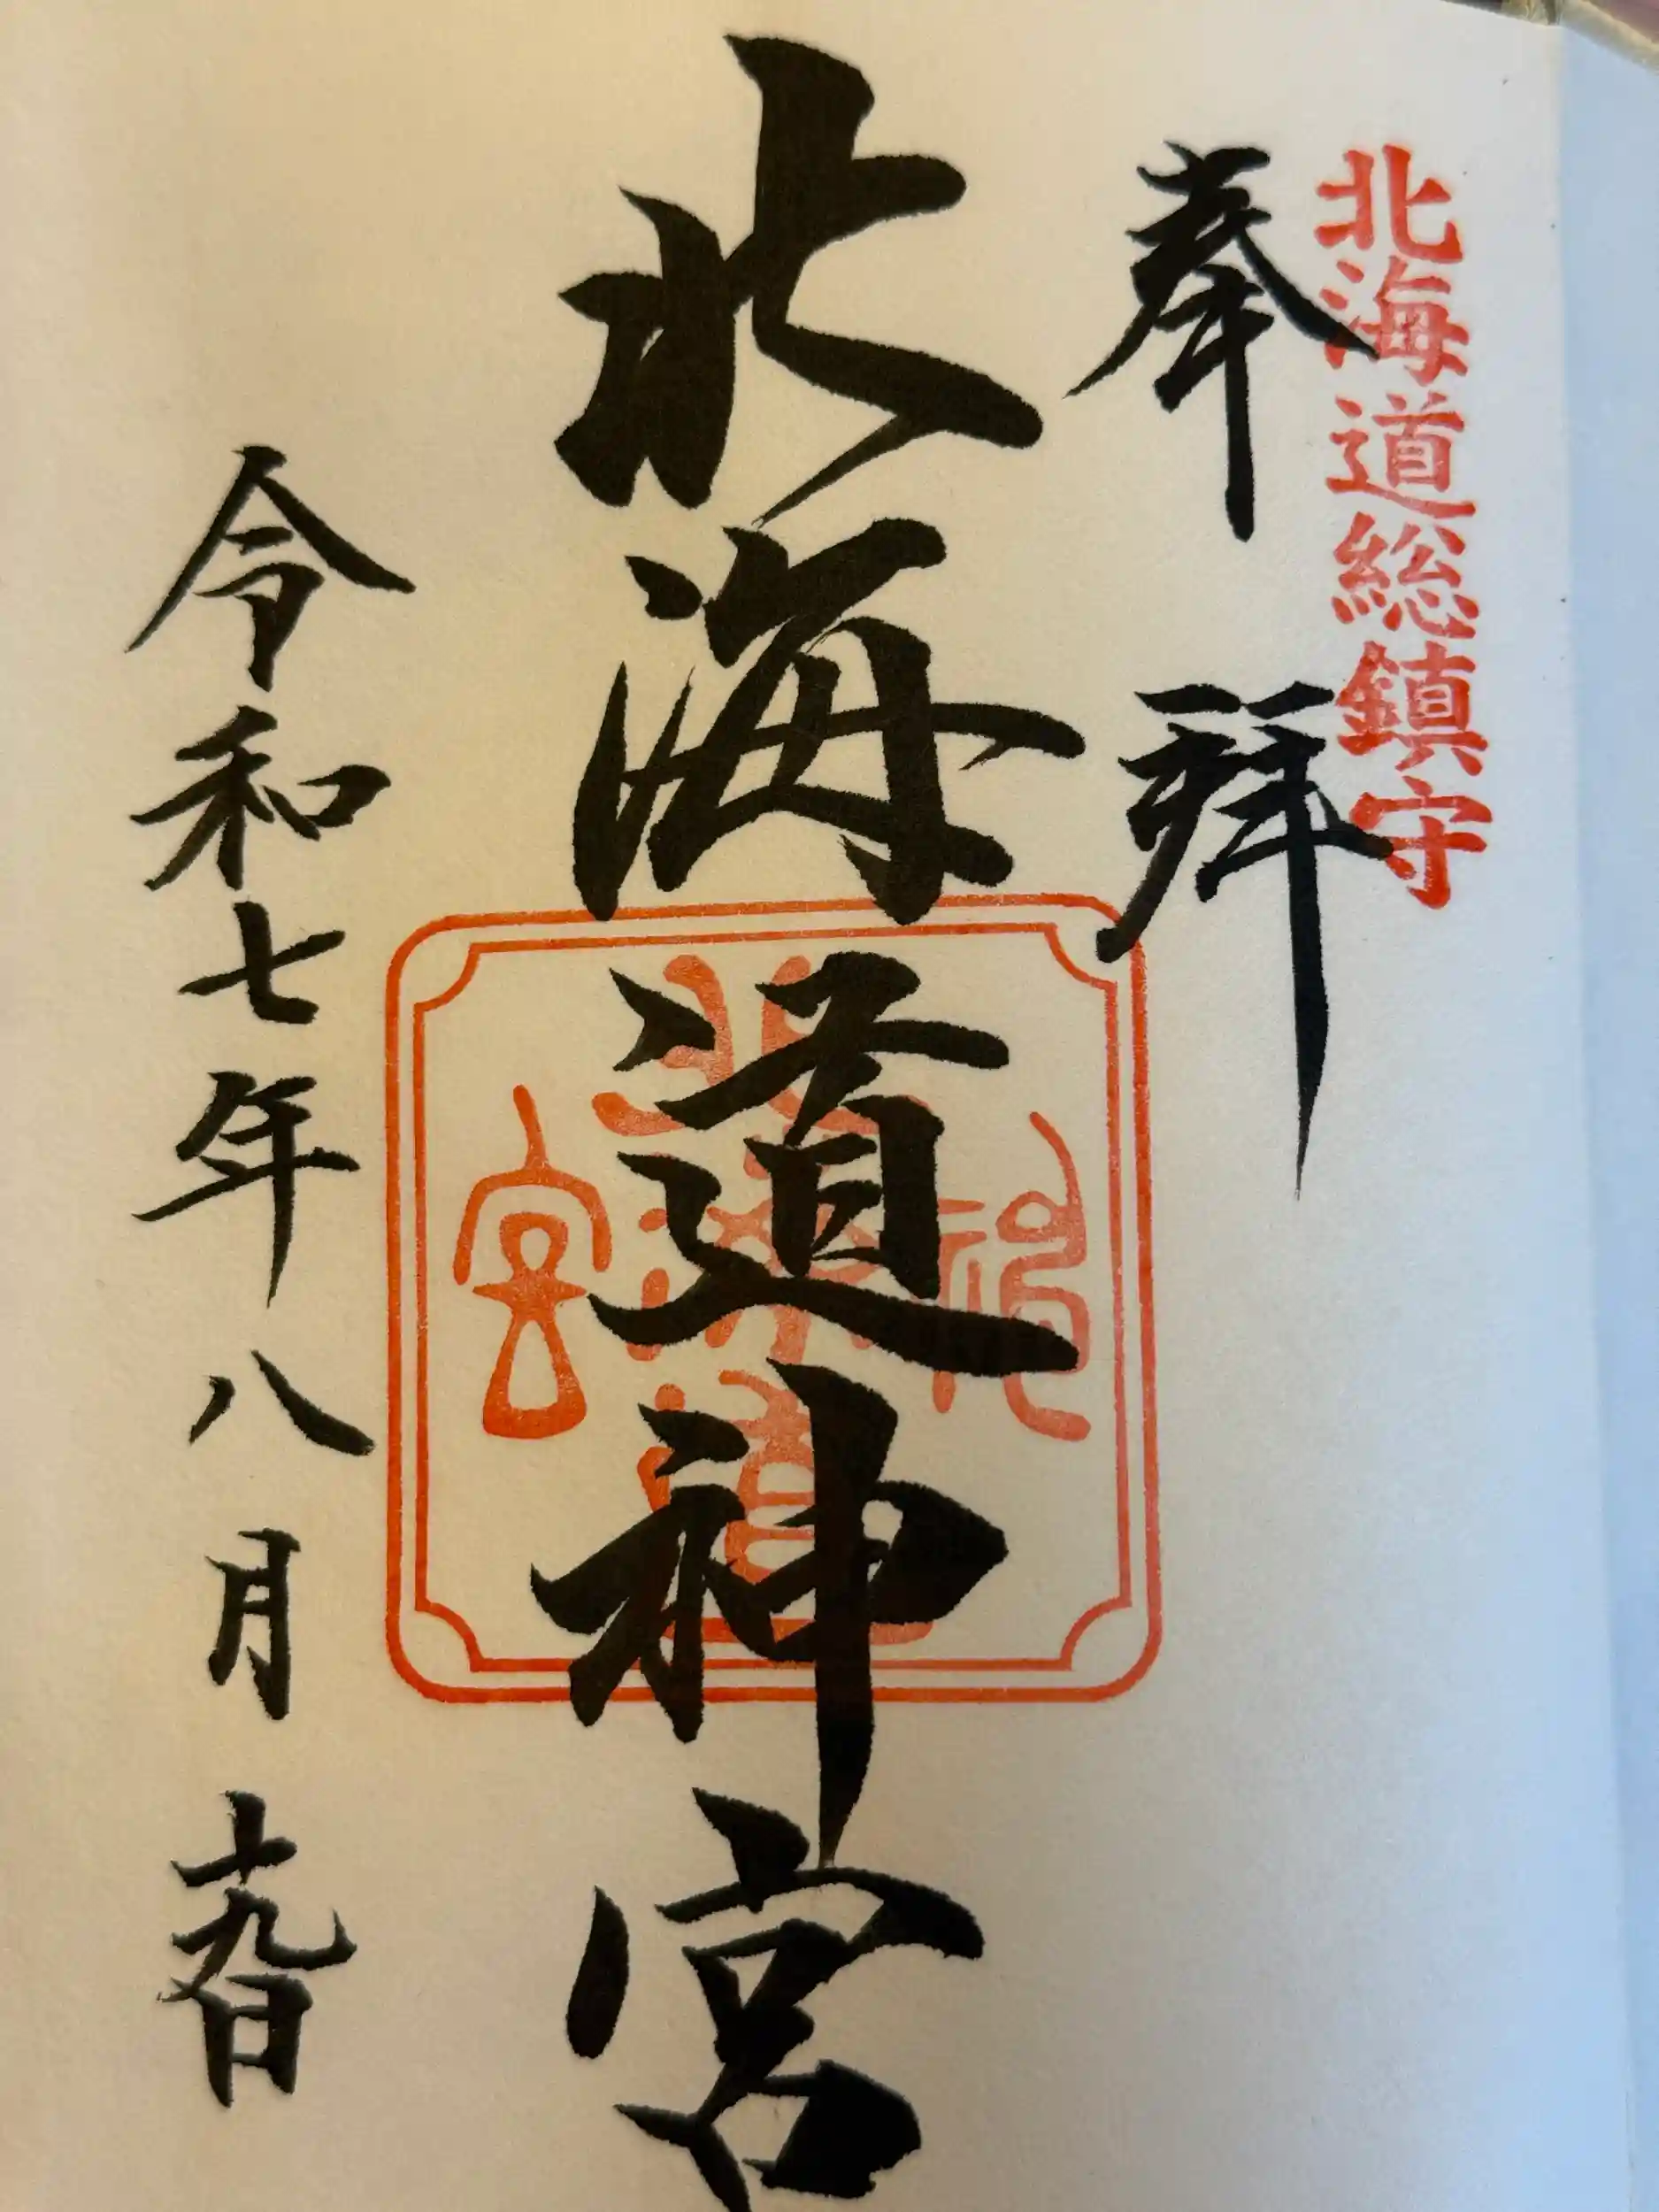 北海道総鎮守
奉拝
北海道神宮
北海道神宮
令和七年八月十九日